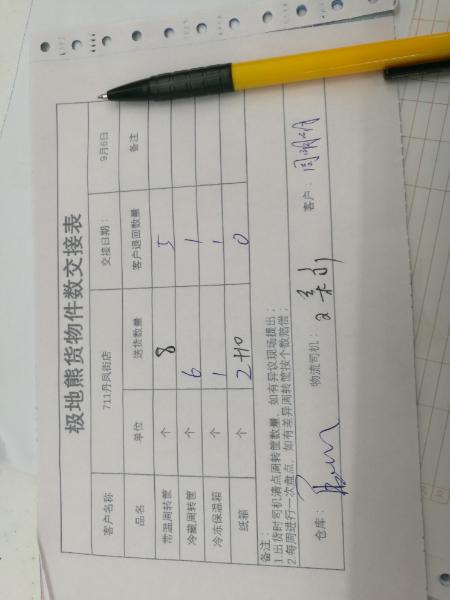 极地熊货物件数交接表
客户名称 711丹凤街店 交接日期： 9月6日
品名 单位 送货数量 客户退回数量 备注
常温周转筐 个 8 5
冷藏周转筐 个 6 1
冷冻保温箱 个 1 1
纸箱 个 2+10 0
备注：
1.出货时司机清点周转筐数量，如有异议现场提出；
2.每周进行一次盘点，如有差异周转筐按个数赔偿；
仓库： 物流司机： 客户：